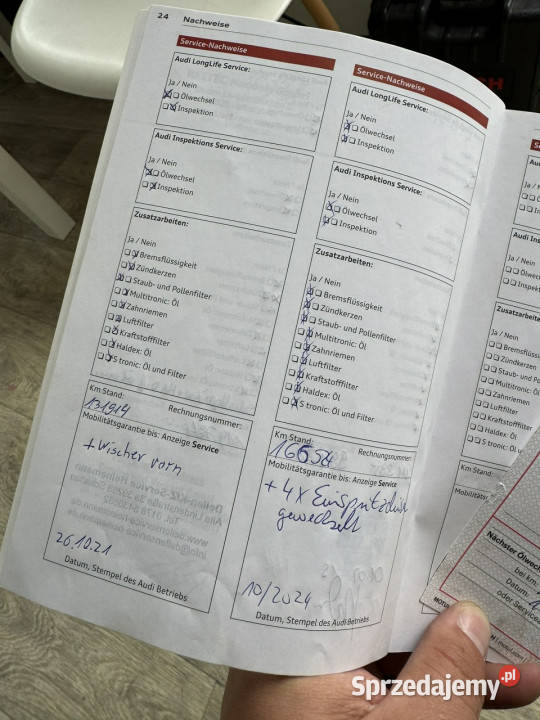 24 Nachweise
Service-Nachweise
Audi LongLife Service:
Ja / Nein
Ölwechsel
Inspektion
Audi Inspektions Service:
Ja / Nein
Ölwechsel
Inspektion
Zusatzarbeiten:
Ja / Nein
Bremsflüssigkeit
Zündkerzen
Staub- und Pollenfilter
Multitronic: Öl
Zahnriemen
Luftfilter
Kraftstofffilter
Haldex: Öl
S tronic: Öl und Filter
Km Stand:
131914
Rechnungsnummer:
Mobilitätsgarantie bis: Anzeige Service
+ Wischer vorn
26.10.21
Datum, Stempel des Audi Betriebs
Service-Nachweise
Audi LongLife Service:
Ja / Nein
Ölwechsel
Inspektion
Audi Inspektions Service:
Ja / Nein
Ölwechsel
Inspektion
Zusatzarbeiten:
Ja / Nein
Bremsflüssigkeit
Zündkerzen
Staub- und Pollenfilter
Multitronic: Öl
Zahnriemen
Luftfilter
Kraftstofffilter
Haldex: Öl
S tronic: Öl und Filter
Km Stand:
Rechnungsnummer:
Mobilitätsgarantie bis: Anzeige Service
+ 4x
gewechselt
10/2024
Datum, Stempel des Audi Betriebs
Ja /
Zusatzarbeiten:
Ja / Nein
Zündkerzen
Multitronic: Öl
Zahnriemen
Luftfilter
Kraftstofffilter
Haldex: Öl
Km Stand:
Nächster Ölwechs
bei km:
Datum:
oder Service
Sprzedajemy.pl